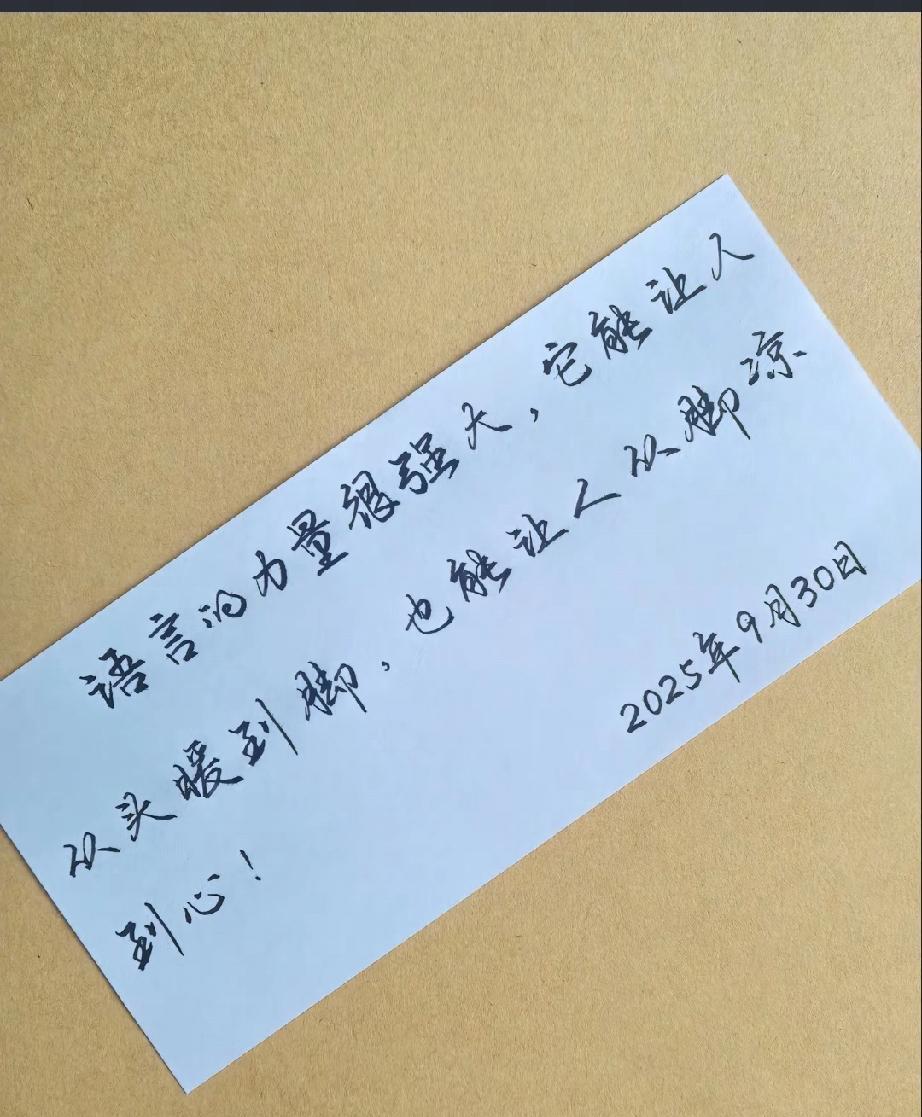 语言的力量很强大，它能让人
从头暖到脚，也能让人从脚凉
到心！
2025年9月30日